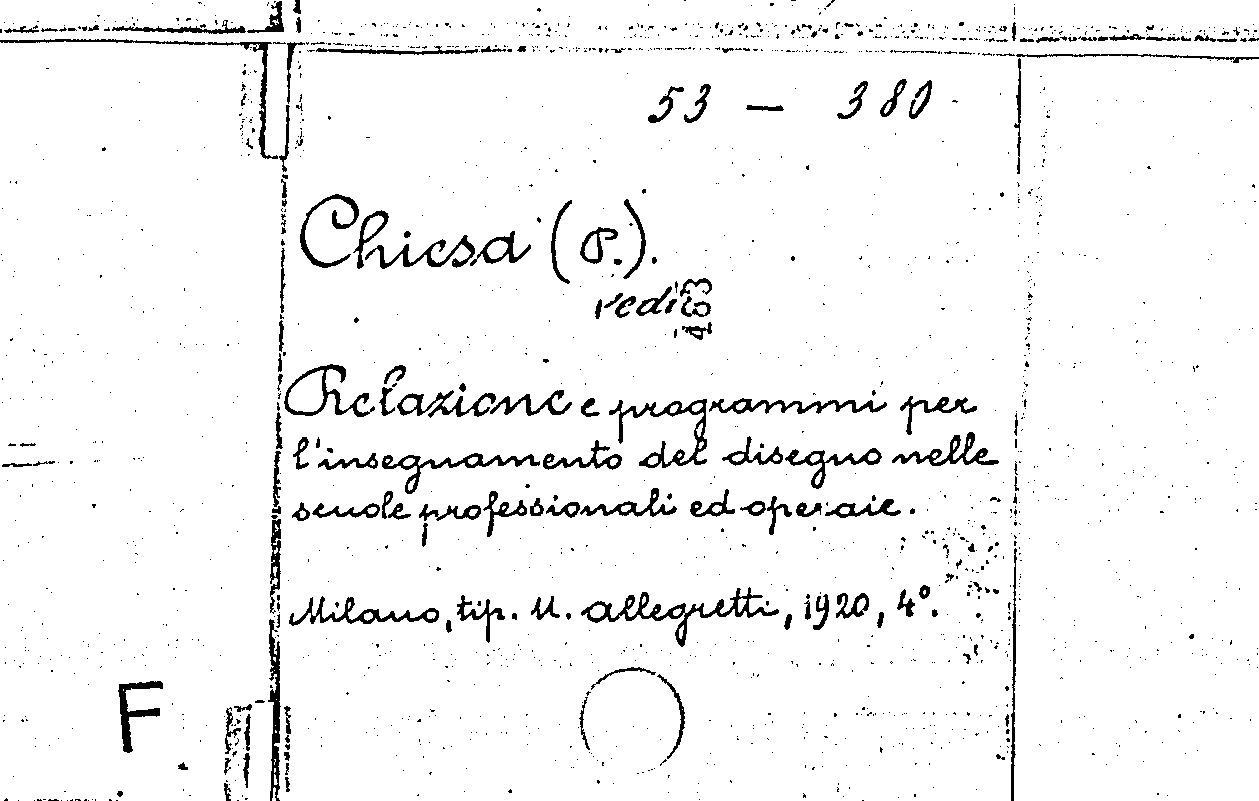 53 — 380
Chiesa (P.).
vedi 463
Relazione e programmi per
l'insegnamento del disegno nelle
scuole professionali ed operaie.
Milano, tip. U. Allegretti, 1920, 4°.
F